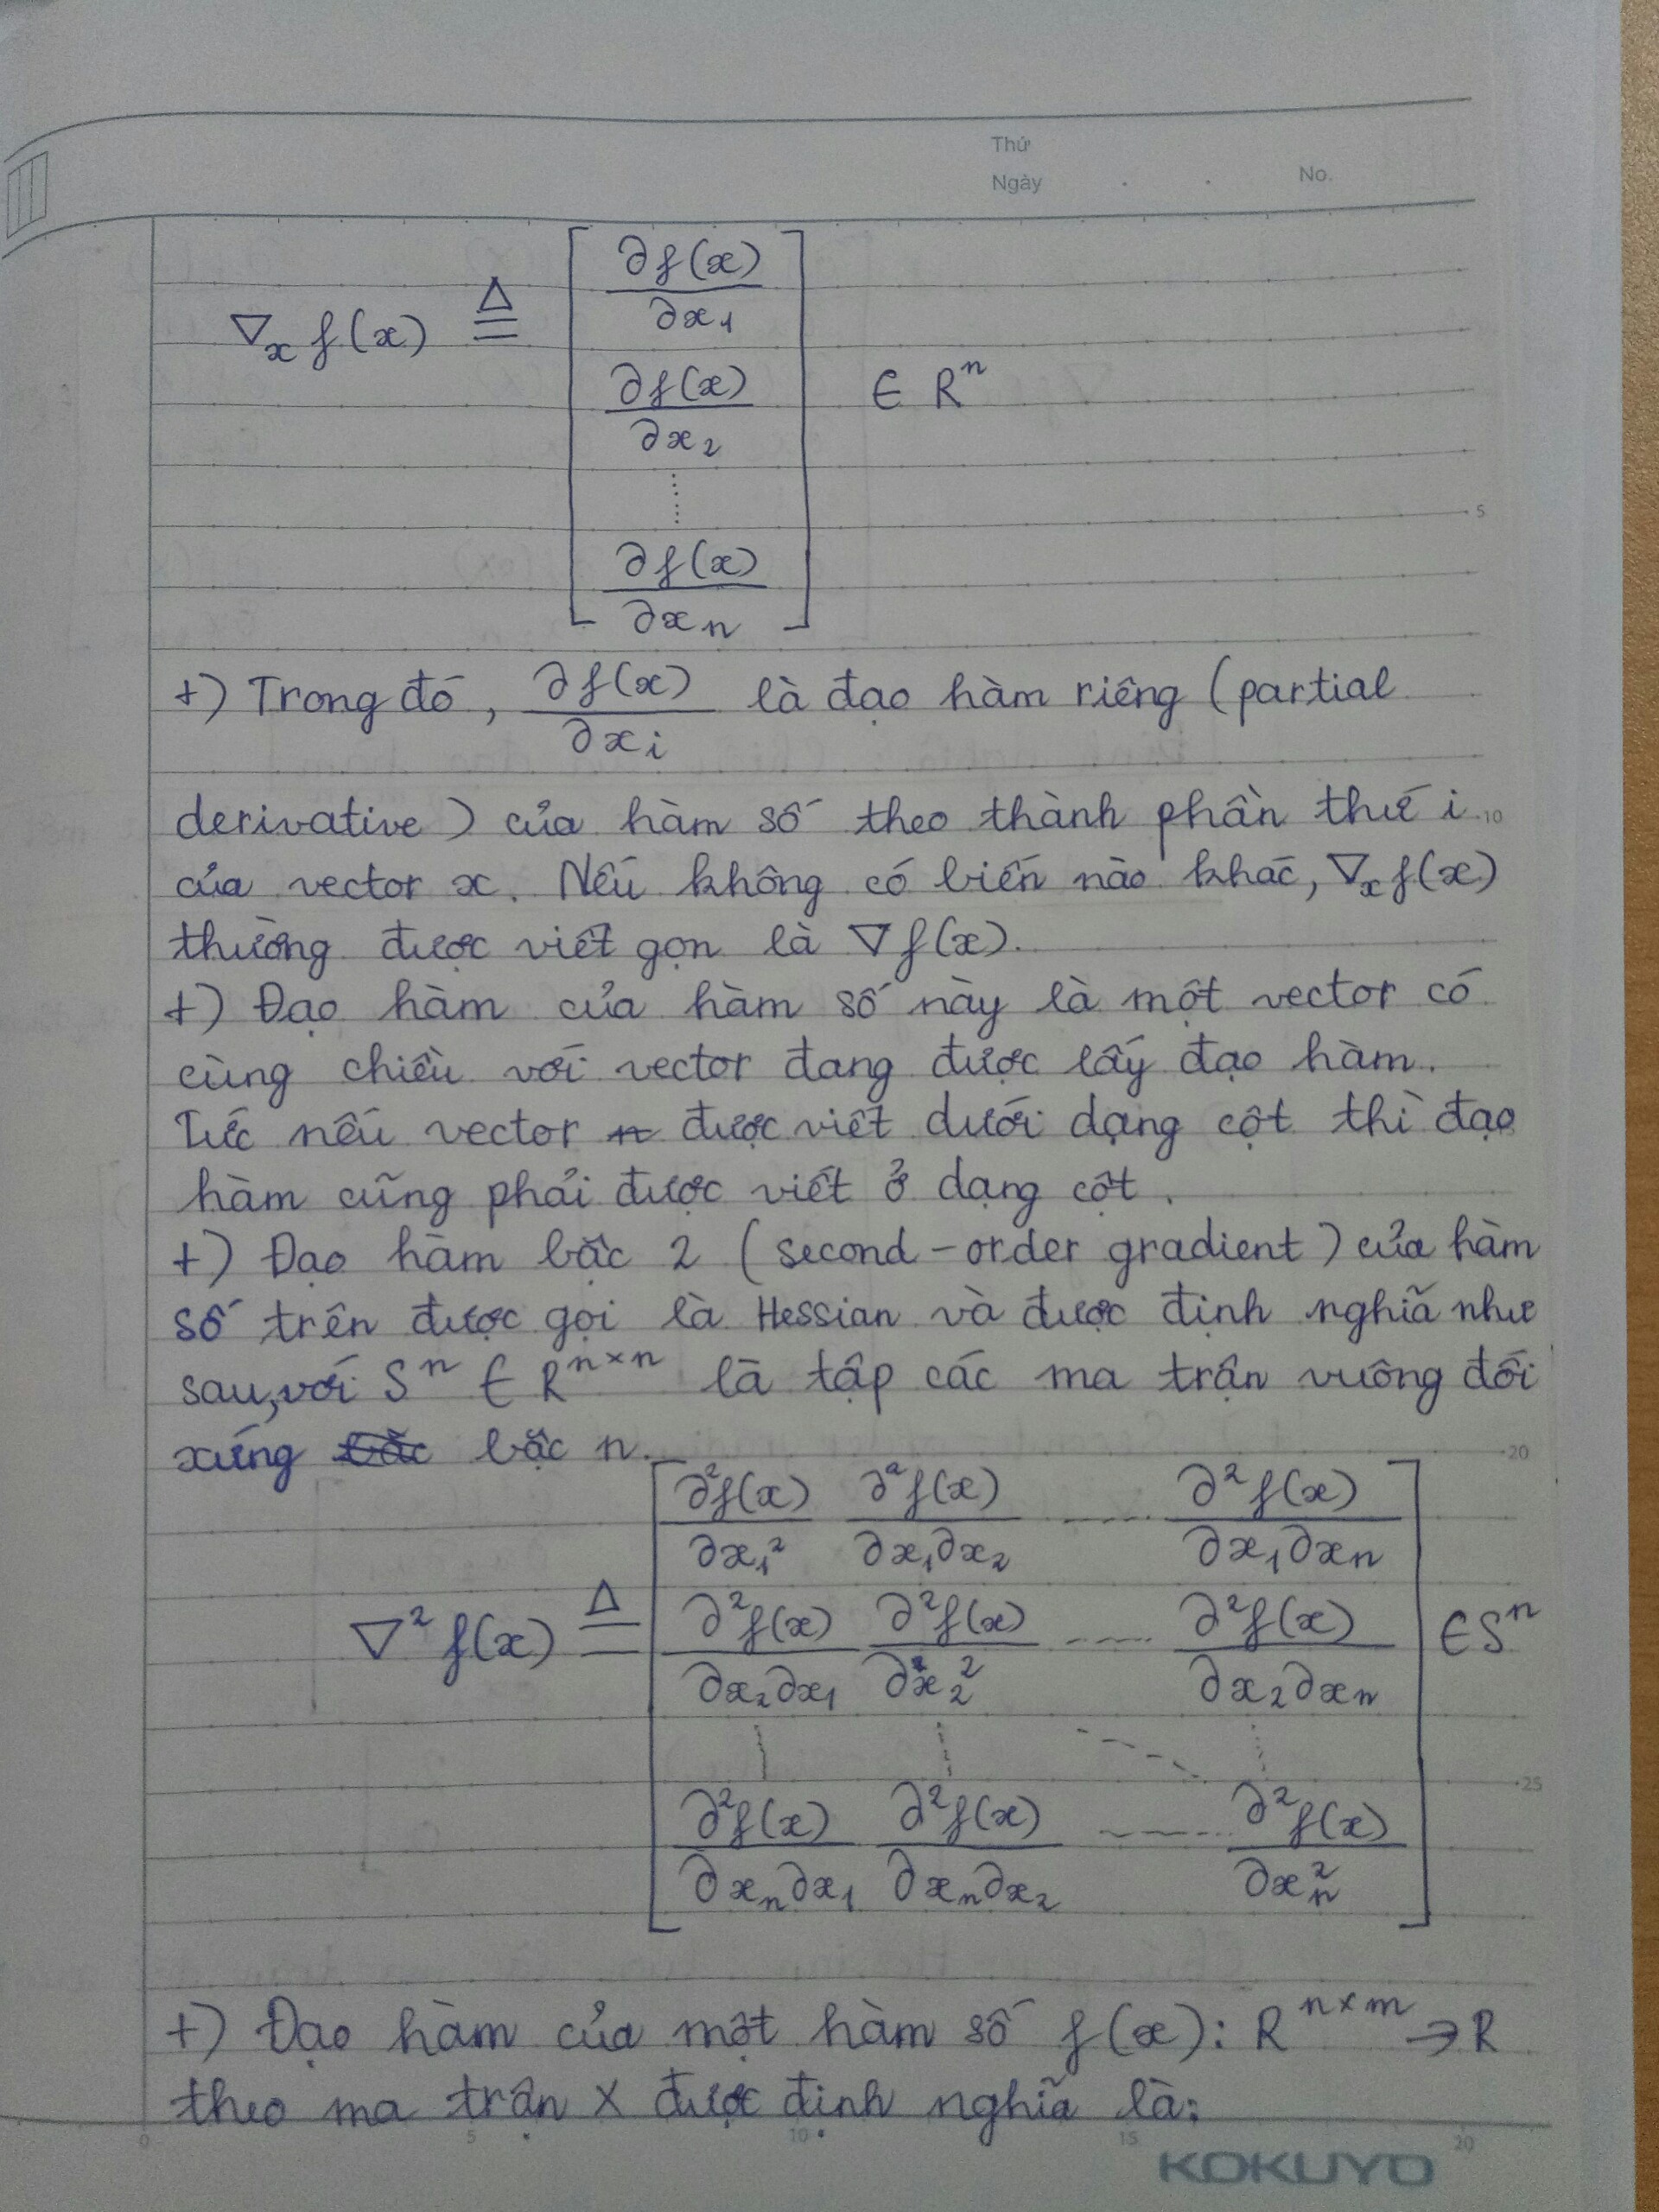 Thứ
Ngày . . No.
∇ₓ f(x) ≜ [ ∂f(x)/∂x₁
∂f(x)/∂x₂ ∈ Rⁿ
⋮
∂f(x)/∂xₙ ]
5
+) Trong đó, ∂f(x)/∂xᵢ là đạo hàm riêng (partial
derivative) của hàm số theo thành phần thứ i 10
của vector x. Nếu không có biến nào khác, ∇ₓ f(x)
thường được viết gọn là ∇f(x).
+) Đạo hàm của hàm số này là một vector có
cùng chiều với vector đang được lấy đạo hàm.
Tức nếu vector được viết dưới dạng cột thì đạo
hàm cũng phải được viết ở dạng cột.
+) Đạo hàm bậc 2 (second-order gradient) của hàm
số trên được gọi là Hessian và được định nghĩa như
sau, với Sⁿ ∈ Rⁿˣⁿ là tập các ma trận vuông đối
xứng bậc n. 20
[ ∂²f(x)/∂x₁² ∂²f(x)/∂x₁∂x₂ ...... ∂²f(x)/∂x₁∂xₙ
∇² f(x) ≜ ∂²f(x)/∂x₂∂x₁ ∂²f(x)/∂x₂² ...... ∂²f(x)/∂x₂∂xₙ ∈ Sⁿ
⋮ ⋮ ⋱ ⋮
25
∂²f(x)/∂xₙ∂x₁ ∂²f(x)/∂xₙ∂x₂ ...... ∂²f(x)/∂xₙ² ]
+) Đạo hàm của một hàm số f(x): Rⁿˣᵐ → R
theo ma trận X được định nghĩa là:
0 5 10 15 20
KOKUYO